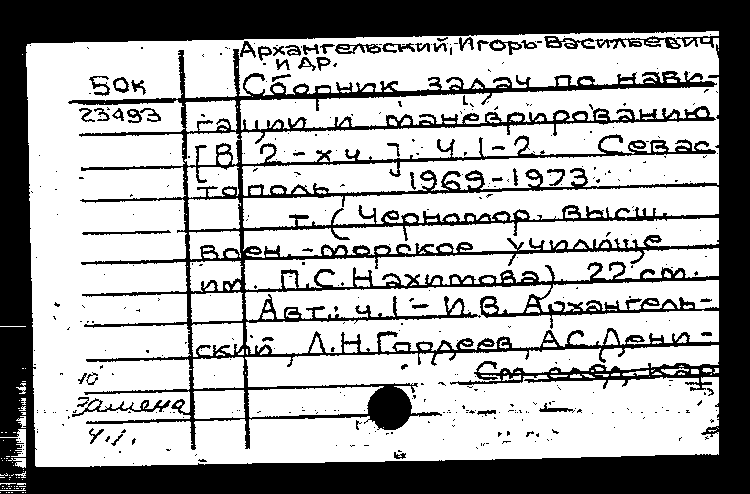 Архангельский, Игорь Васильевич,
и др.
Бок
Сборник задач по нави-
23493
гации и маневрированию.
[В 2-х ч.]. Ч.1-2. Севас-
тополь, 1969-1973.
т. (Черномор. высш.
воен.-морское училище
им. П.С.Нахимова). 22 см.
Авт.: ч.1 - И.В. Архангель-
ский, Л.Н.Гордеев, А.С.Дени-
См. след. кар
10
Замена
Ч.1.